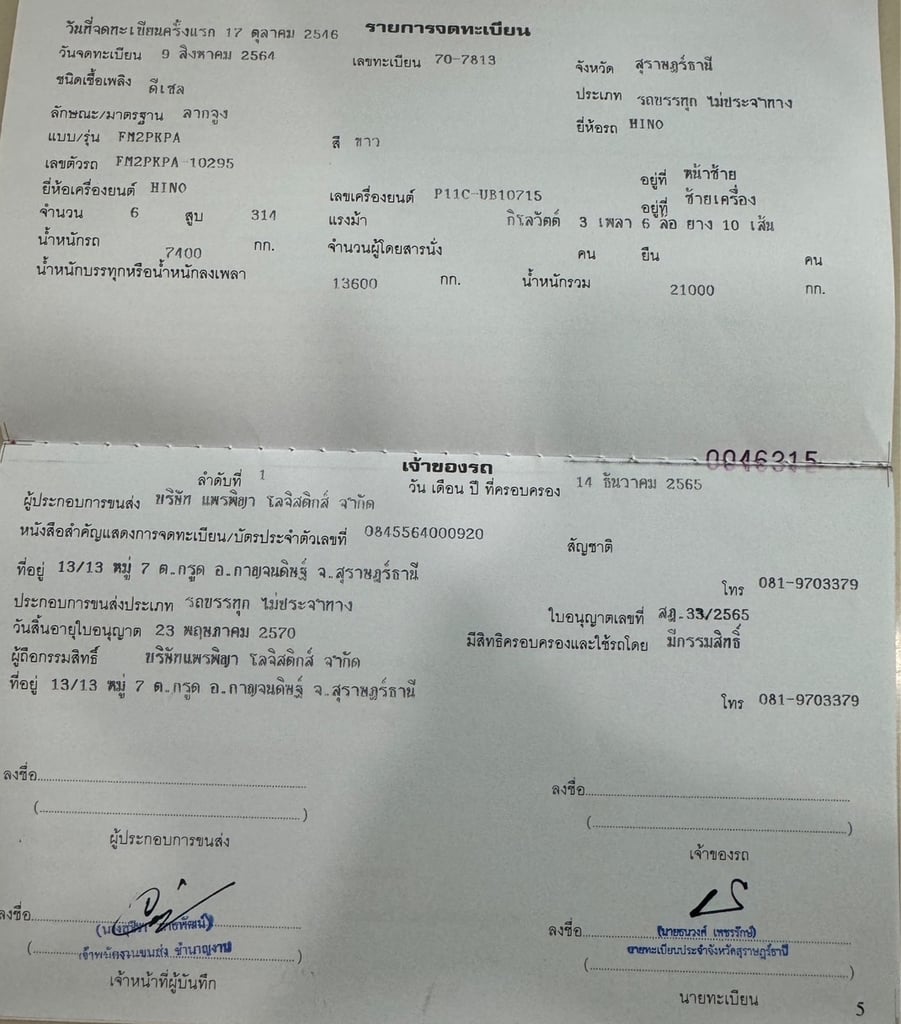 วันที่จดทะเบียนครั้งแรก 17 ตุลาคม 2546 รายการจดทะเบียน
วันจดทะเบียน 9 สิงหาคม 2564 เลขทะเบียน 70-7813 จังหวัด สุราษฎร์ธานี
ชนิดเชื้อเพลิง ดีเซล ประเภท รถบรรทุก ไม่ประจำทาง
ลักษณะ/มาตรฐาน ลากจูง ยี่ห้อรถ HINO
แบบ/รุ่น FM2PKPA สี ขาว
เลขตัวรถ FM2PKPA-10295 อยู่ที่ หน้าซ้าย
ยี่ห้อเครื่องยนต์ HINO เลขเครื่องยนต์ P11C-UB10715 อยู่ที่ ซ้ายเครื่อง
จำนวน 6 สูบ 314 แรงม้า กิโลวัตต์ 3 เพลา 6 ล้อ ยาง 10 เส้น
น้ำหนักรถ 7400 กก. จำนวนผู้โดยสารนั่ง คน ยืน คน
น้ำหนักบรรทุกหรือน้ำหนักลงเพลา 13600 กก. น้ำหนักรวม 21000 กก.
0046315
เจ้าของรถ
ลำดับที่ 1 วัน เดือน ปี ที่ครอบครอง 14 ธันวาคม 2565
ผู้ประกอบการขนส่ง บริษัท แพรพิญา โลจิสติกส์ จำกัด
หนังสือสำคัญแสดงการจดทะเบียน/บัตรประจำตัวเลขที่ 0845564000920 สัญชาติ
ที่อยู่ 13/13 หมู่ 7 ต.กรูด อ.กาญจนดิษฐ์ จ.สุราษฎร์ธานี โทร 081-9703379
ประกอบการขนส่งประเภท รถบรรทุก ไม่ประจำทาง ใบอนุญาตเลขที่ สฎ.33/2565
วันสิ้นอายุใบอนุญาต 23 พฤษภาคม 2570 มีสิทธิครอบครองและใช้รถโดย มีกรรมสิทธิ์
ผู้ถือกรรมสิทธิ์ บริษัทแพรพิญา โลจิสติกส์ จำกัด
ที่อยู่ 13/13 หมู่ 7 ต.กรูด อ.กาญจนดิษฐ์ จ.สุราษฎร์ธานี โทร 081-9703379
ลงชื่อ ลงชื่อ
( ) ( )
ผู้ประกอบการขนส่ง เจ้าของรถ
ลงชื่อ ลงชื่อ (นายธนวงศ์ เพชรรักษ์)
เจ้าพนักงานขนส่ง ชำนาญงาน นายทะเบียนประจำจังหวัดสุราษฎร์ธานี
เจ้าหน้าที่ผู้บันทึก นายทะเบียน
5